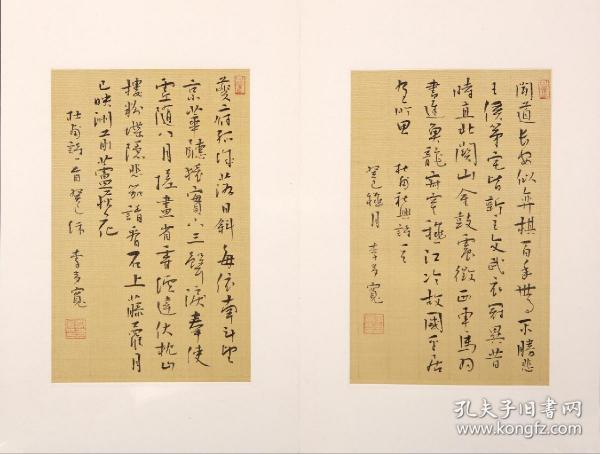 聞道長安似弈棋百年世事不勝悲
王侯第宅皆新主文武衣冠異昔
時直北関山金鼓震徵西車馬羽
書遲魚龍寂寞秋江冷故國平居
有所思 杜甫秋興詩一首
癸巳穐月 李 寬
夔府孤城落日斜每依南斗望
京華聽猿實下三聲淚奉使
虛隨八月槎畫省香爐違伏枕山
樓粉堞隱悲笳請看石上藤蘿月
已映洲前蘆荻花
杜甫詩一首 癸巳 李 寬
孔夫子旧书网
www.kongfz.com